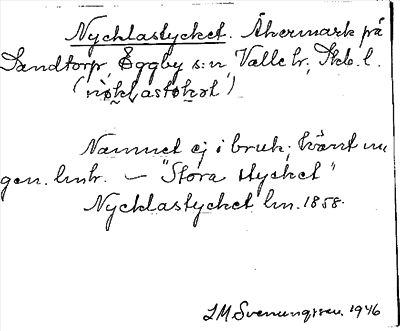 Nycklastycket. Åkermark på
Sandtorp, Eggby s:n, Valle hr, Skb. l.
(nøklastøkət)
Namnet ej i bruk; känt
gen. lm hr. — "Stora stycket"
Nycklastycket lm. 1858.
LM Svenungsson. 1946